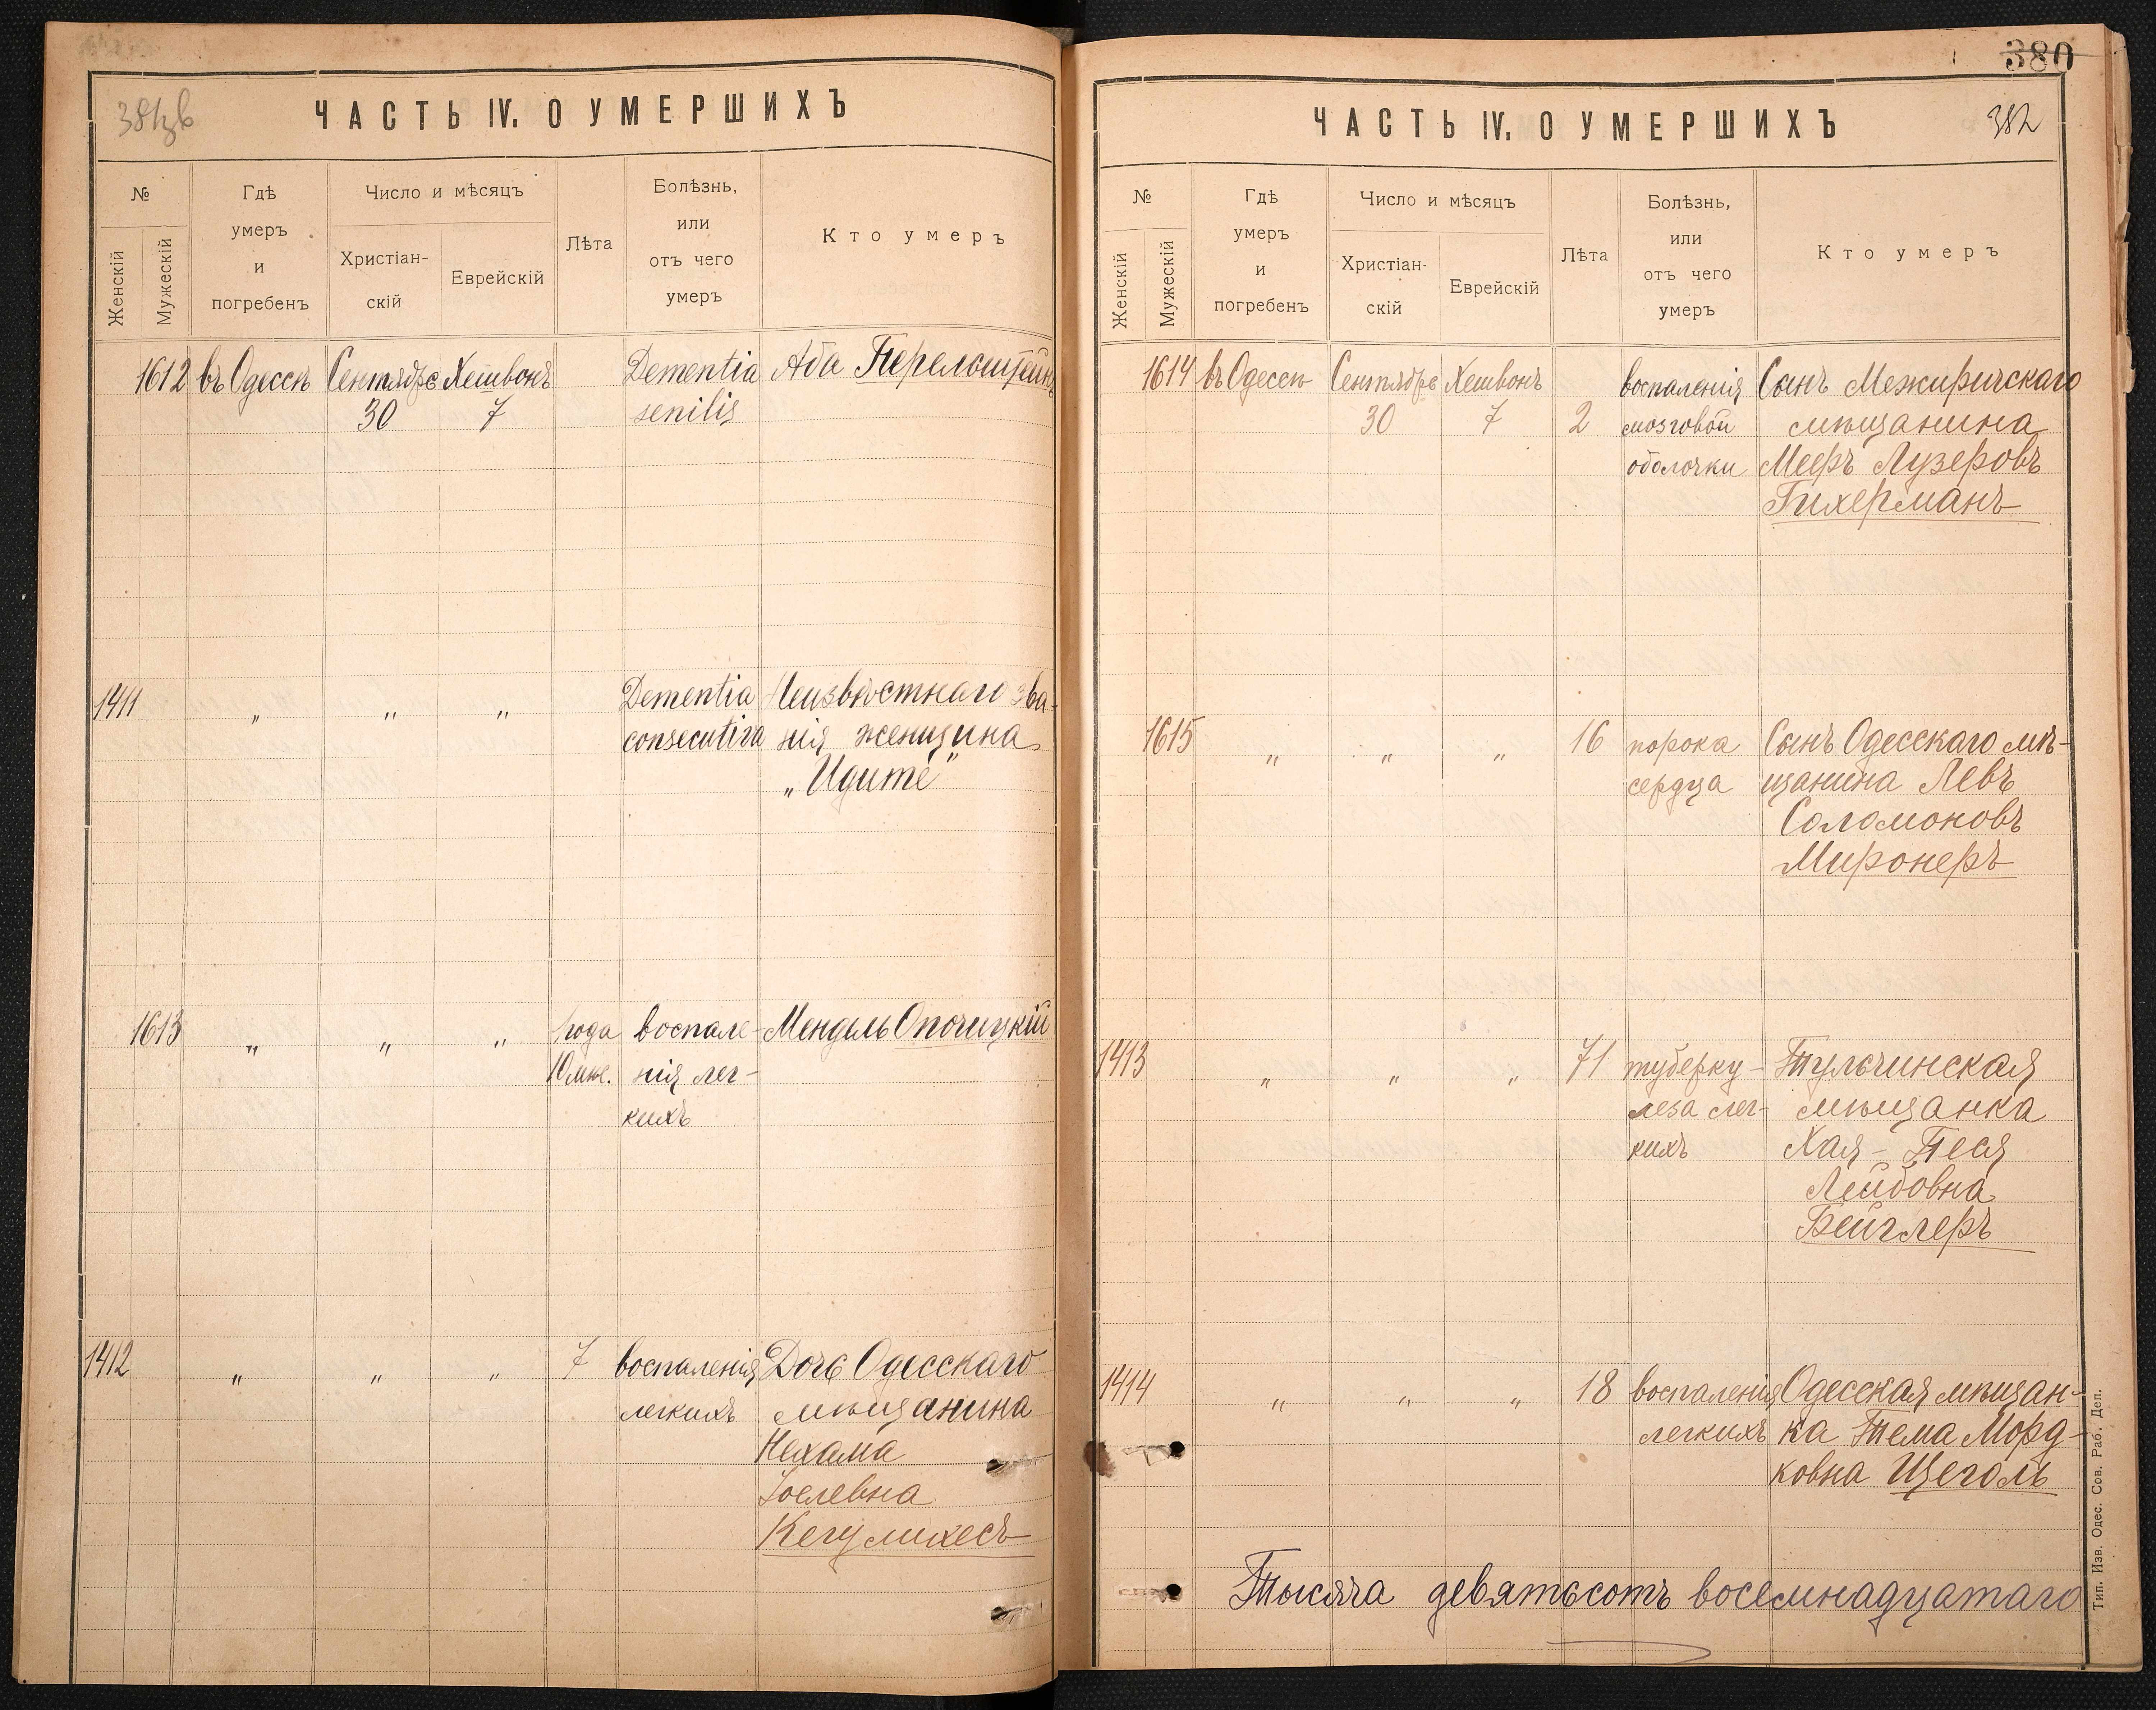 ЧАСТЬ IV. О УМЕРШИХЪ
№
Женскій
Мужескій
Гдѣ
умеръ
и
погребенъ
Число и мѣсяцъ
Христіан-
скій
Еврейскій
Лѣта
Болѣзнь,
или
отъ чего
умеръ
Кто умеръ
1612 въ Одессѣ Сентября Хешвонъ Dementia Аба Перельштейнъ
30 7 senilis
1411 „ „ „ Dementia Неизвѣстнаго зва-
consecutiva нія женщина
„Идите"
1613 „ „ „ 1 года воспале- Мендель Опочицкій
10 мѣс. нія лег-
кихъ
1412 „ „ „ 7 воспаленія Дочь Одесскаго
легкихъ мѣщанина
Нехама
Іоселевна
Кегулихесъ
380
ЧАСТЬ IV. О УМЕРШИХЪ 382
№
Женскій
Мужескій
Гдѣ
умеръ
и
погребенъ
Число и мѣсяцъ
Христіан-
скій
Еврейскій
Лѣта
Болѣзнь,
или
отъ чего
умеръ
Кто умеръ
1614 въ Одессѣ Сентября Хешвонъ воспаленія Сынъ Межиричскаго
30 7 2 мозговой мѣщанина
оболочки Мееръ Лузеровъ
Гихерманъ
1615 „ „ „ 16 порока Сынъ Одесскаго мѣ-
сердца щанина Левъ
Соломоновъ
Миронеръ
1413 „ „ „ 71 туберку- Тульчинская
леза лег- мѣщанка
кихъ Хая - Песя
Лейбовна
Бейглеръ
1414 „ „ „ 18 воспаленія Одесская мѣщан-
легкихъ ка Тема Морд-
ковна Щеголь
Тысяча девятьсотъ восемнадцатаго
Тип. Изв. Одес. Сов. Раб. Деп.